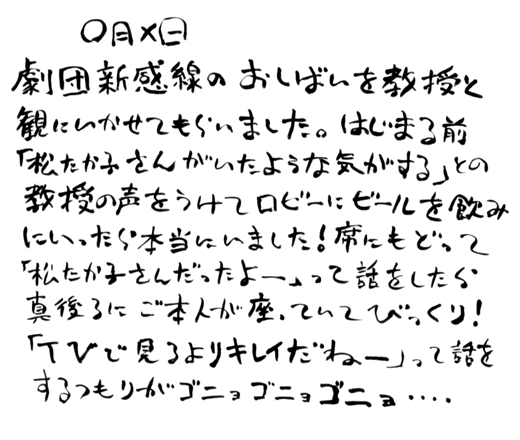 〇月×日
劇団新感線の おしばいを教授と
観にいかせてもらいました。はじまる前
「松たか子さんがいたような気がする」との
教授の声をうけてロビーにビールを飲み
にいったら本当にいました!席にもどって
「松たか子さんだったよー」って話をしたら
真後ろにご本人が座っていてびっくり!
「TVで見るよりキレイだねー」って話を
するつもりがゴニョゴニョゴニョ‥‥